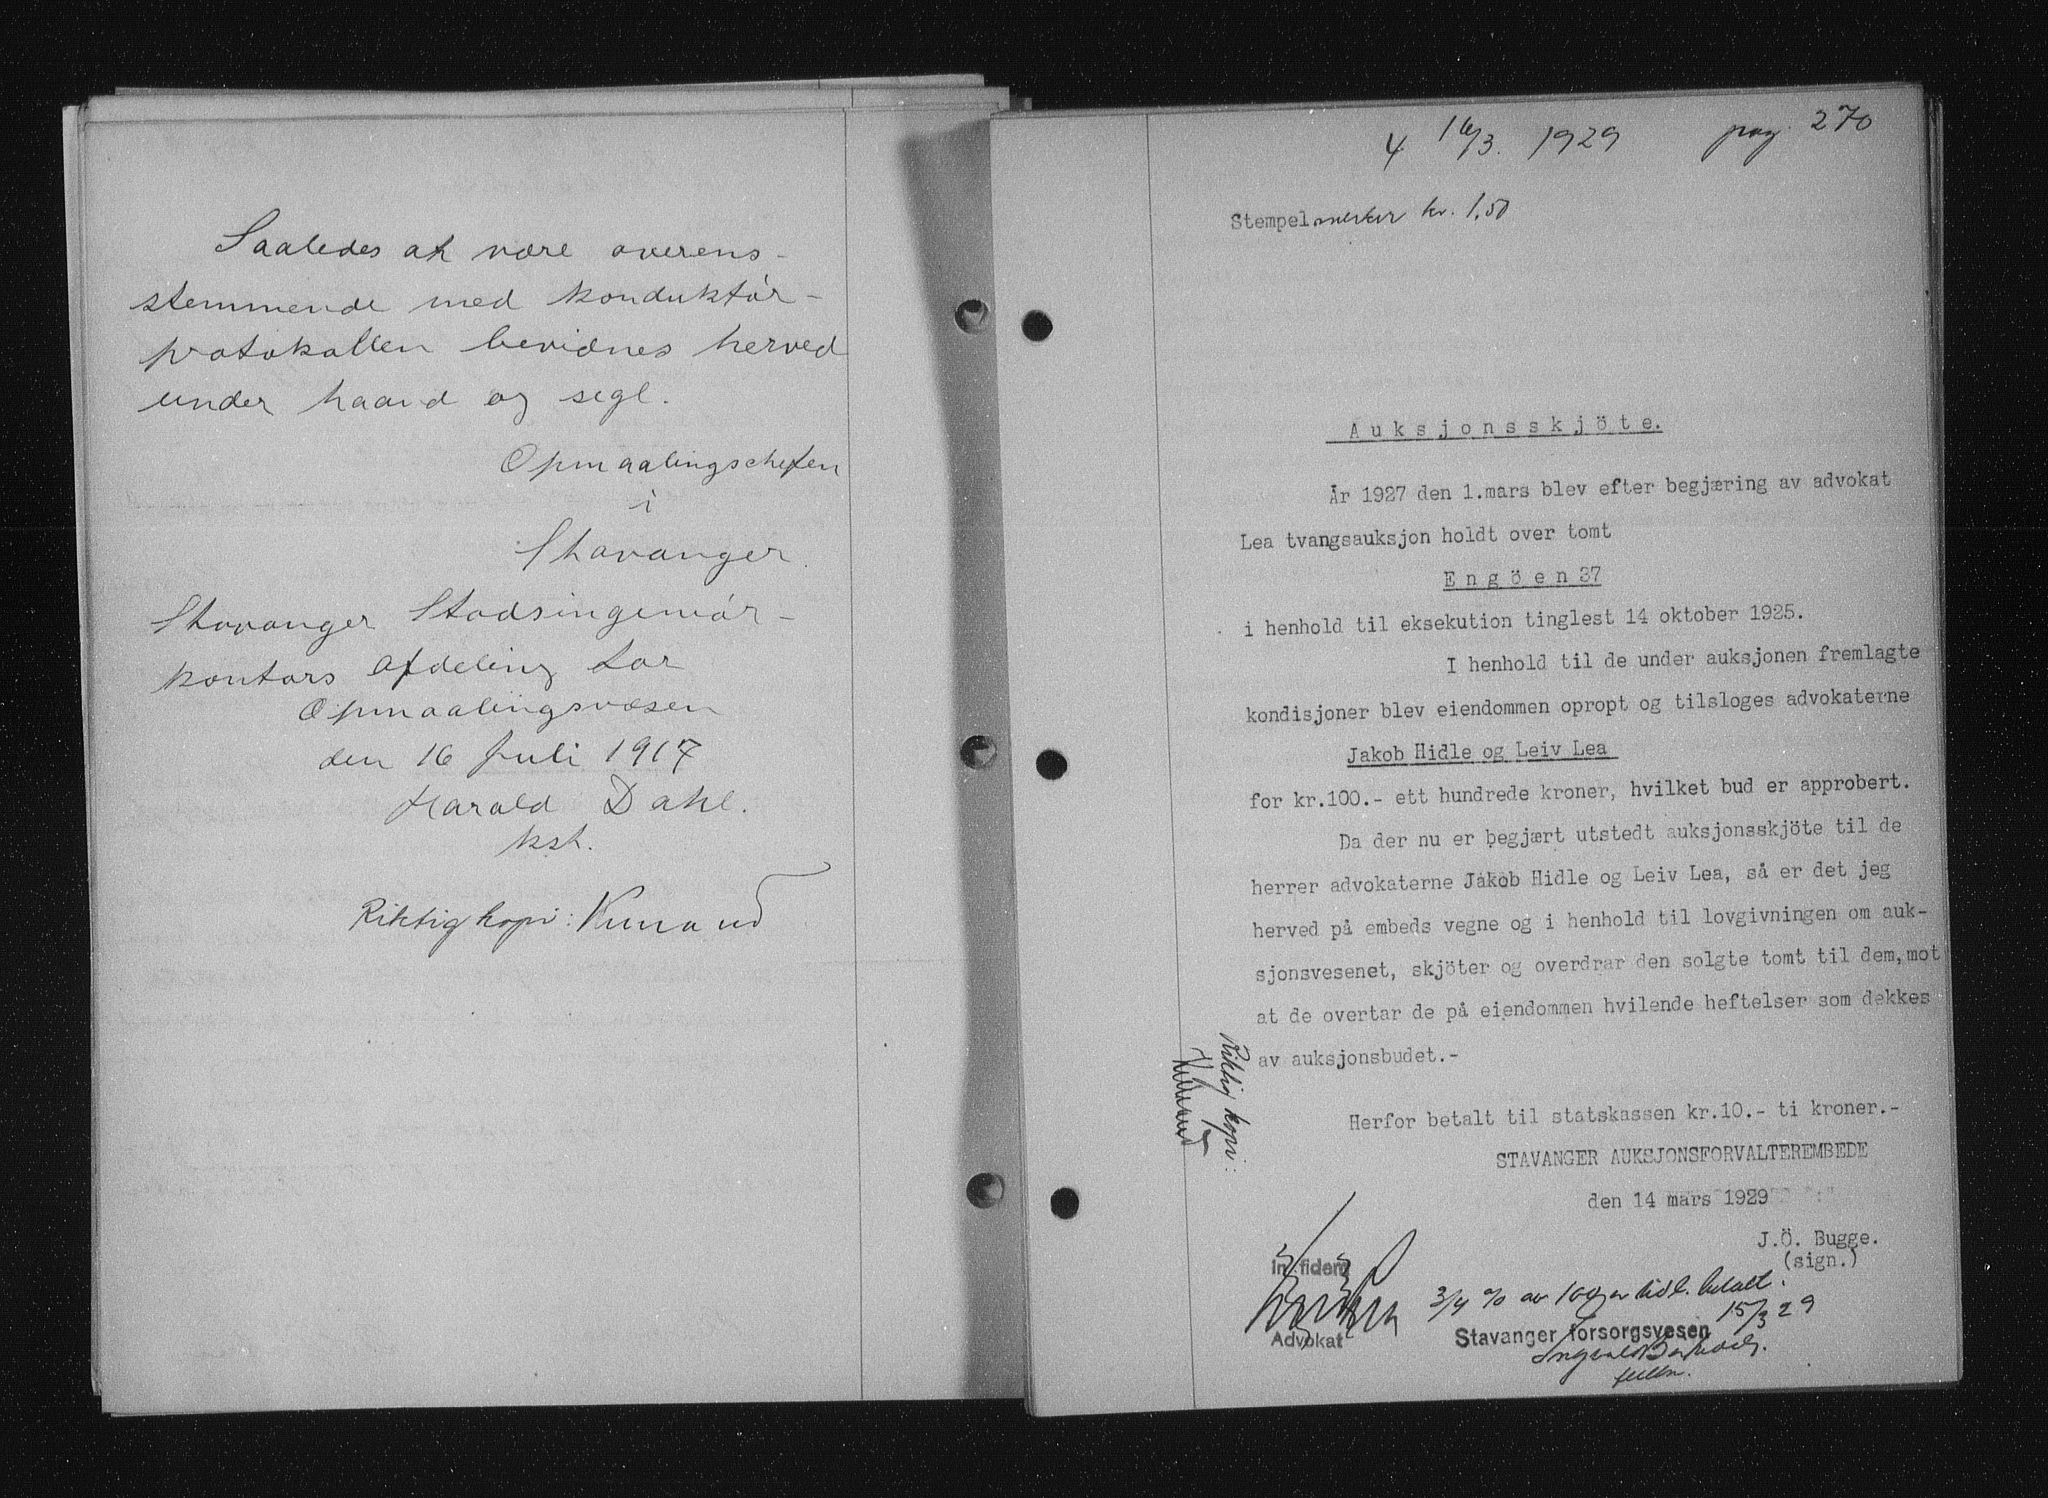 Saaledes at være overens-
stemmende med konduktør-
protokollen bevidnes herved
under haand og segl.
Opmaalingschefen
i
Stavanger.
Stavanger Stadsingeniør-
kontors afdeling for
Opmaalingsvæsen
den 16 Juli 1917
Harald Dahl.
kst.
Riktig kopi:
4 16/3. 1929 pag. 270
Stempelmerker kr. 1,50
Auksjonsskjöte.
År 1927 den 1.mars blev efter begjæring av advokat
Lea tvangsauksjon holdt over tomt
Engöen 37
i henhold til eksekution tinglest 14 oktober 1925.
I henhold til de under auksjonen fremlagte
kondisjoner blev eiendommen opropt og tilsloges advokaterne
Jakob Hidle og Leiv Lea
for kr.100.- ett hundrede kroner, hvilket bud er approbert.
Da der nu er begjært utstedt auksjonsskjöte til de
herrer advokaterne Jakob Hidle og Leiv Lea, så er det jeg
herved på embeds vegne og i henhold til lovgivningen om auk-
sjonsvesenet, skjöter og overdrar den solgte tomt til dem, mot
at de overtar de på eiendommen hvilende heftelser som dekkes
av auksjonsbudet.-
Riktig kopi:
Herfor betalt til statskassen kr.10.- ti kroner.-
STAVANGER AUKSJONSFORVALTEREMBEDE
den 14 mars 1929
J.Ö. Bugge.
(sign.)
in fidem
Advokat
3/4 % av 100 kr betalt.
15/3 29
Stavanger forsorgsvesen